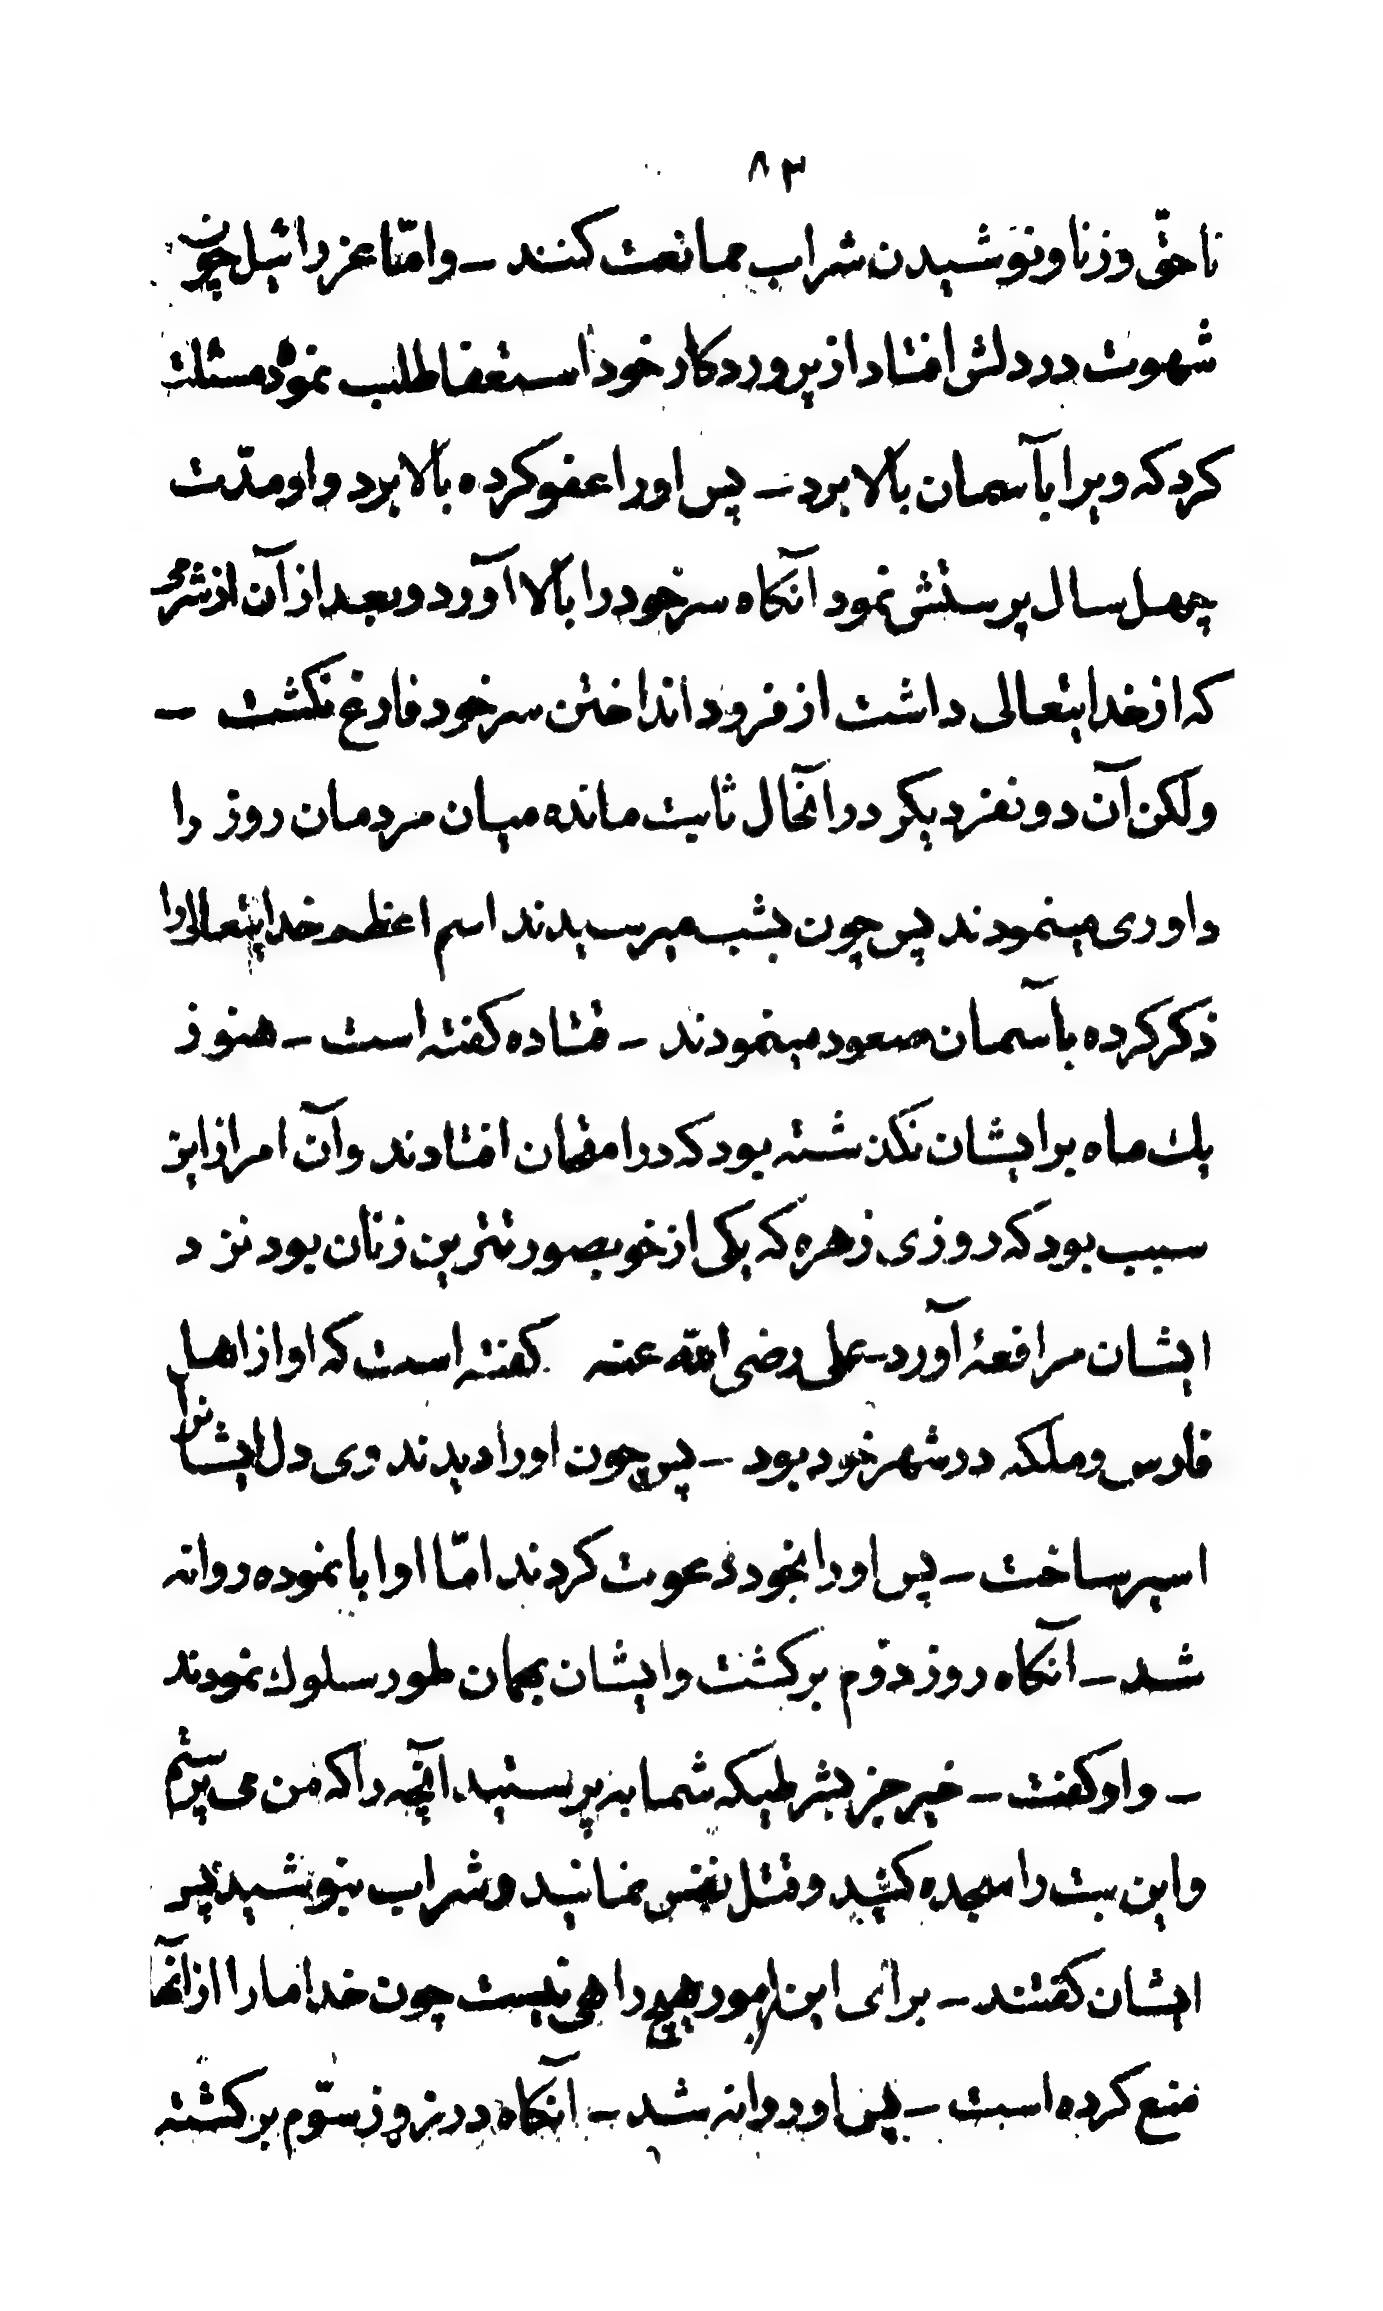 ۸۳
ناحقّ و زنا و نوشیدن شراب ممانعت کنند – و امّا عزرائیل چون
شهوت در دلش افتاد از پروردکار خود استعفا طلب نموده مسئلت
کرد که ویرا بآسمان بالا برد – پس او را عفو کرده بالا برد و او مدّت
چهل سال پرستش نمود آنکاه سر خود را بالا آورد و بعد از آن از شرمی
که از خدایتعالی داشت از فرود انداختن سر خود فارغ نکشت –
ولکن آن دو نفر دیکر در آنحال ثابت مانده میان مردمان روز را
داوری مینمودند پس چون بشب میرسیدند اسم اعظم خدایتعالی را
ذکر کرده بآسمان صعود مینمودند – قتاده کفته است – هنوز
یك ماه بر ایشان نکذشته بود که در امتحان افتادند و آن امر از این
سبب بود که روزی زهره که یکی از خوبصورتترین زنان بود نزد
ایشان مرافعۀ آورد – علی رضی الله عنه کفته است که او از اهل
فارس و ملکه در شهر خود بود – پس چون او را دیدند وی دل ایشانرا
اسیر ساخت – پس او را بخود دعوت کردند امّا او ابا نموده روانه
شد – آنکاه روز دوّم برکشت و ایشان بهمان طور سلوك نمودند
– و او کفت – خیر جز بشرطیکه شما به پرستید آنچه را که من می پرستم
و این بت را سجده کنید و قتل نفس نمائید و شراب بنوشید پس
ایشان کفتند – برای این امور هیچ راهی نیست چون خدا ما را از آنها
منع کرده است – پس او روانه شد – آنکاه در روز سوّم برکشته